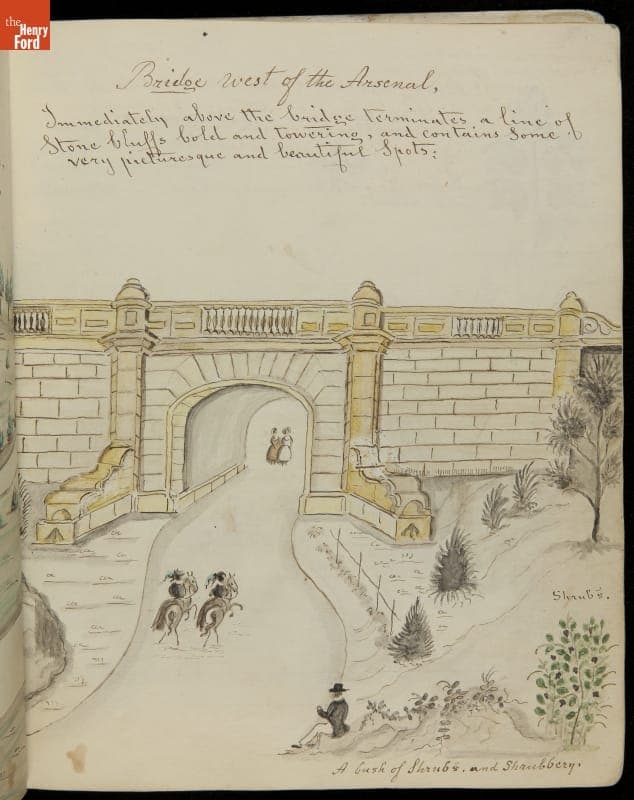 the
Henry
Ford
Bridge west of the Arsenal,
Immediately above the bridge terminates a line of
Stone bluffs bold and towering, and contains Some
very picturesque and beautiful Spots:
Shrubs.
A bush of Shrubs. and Shrubbery.